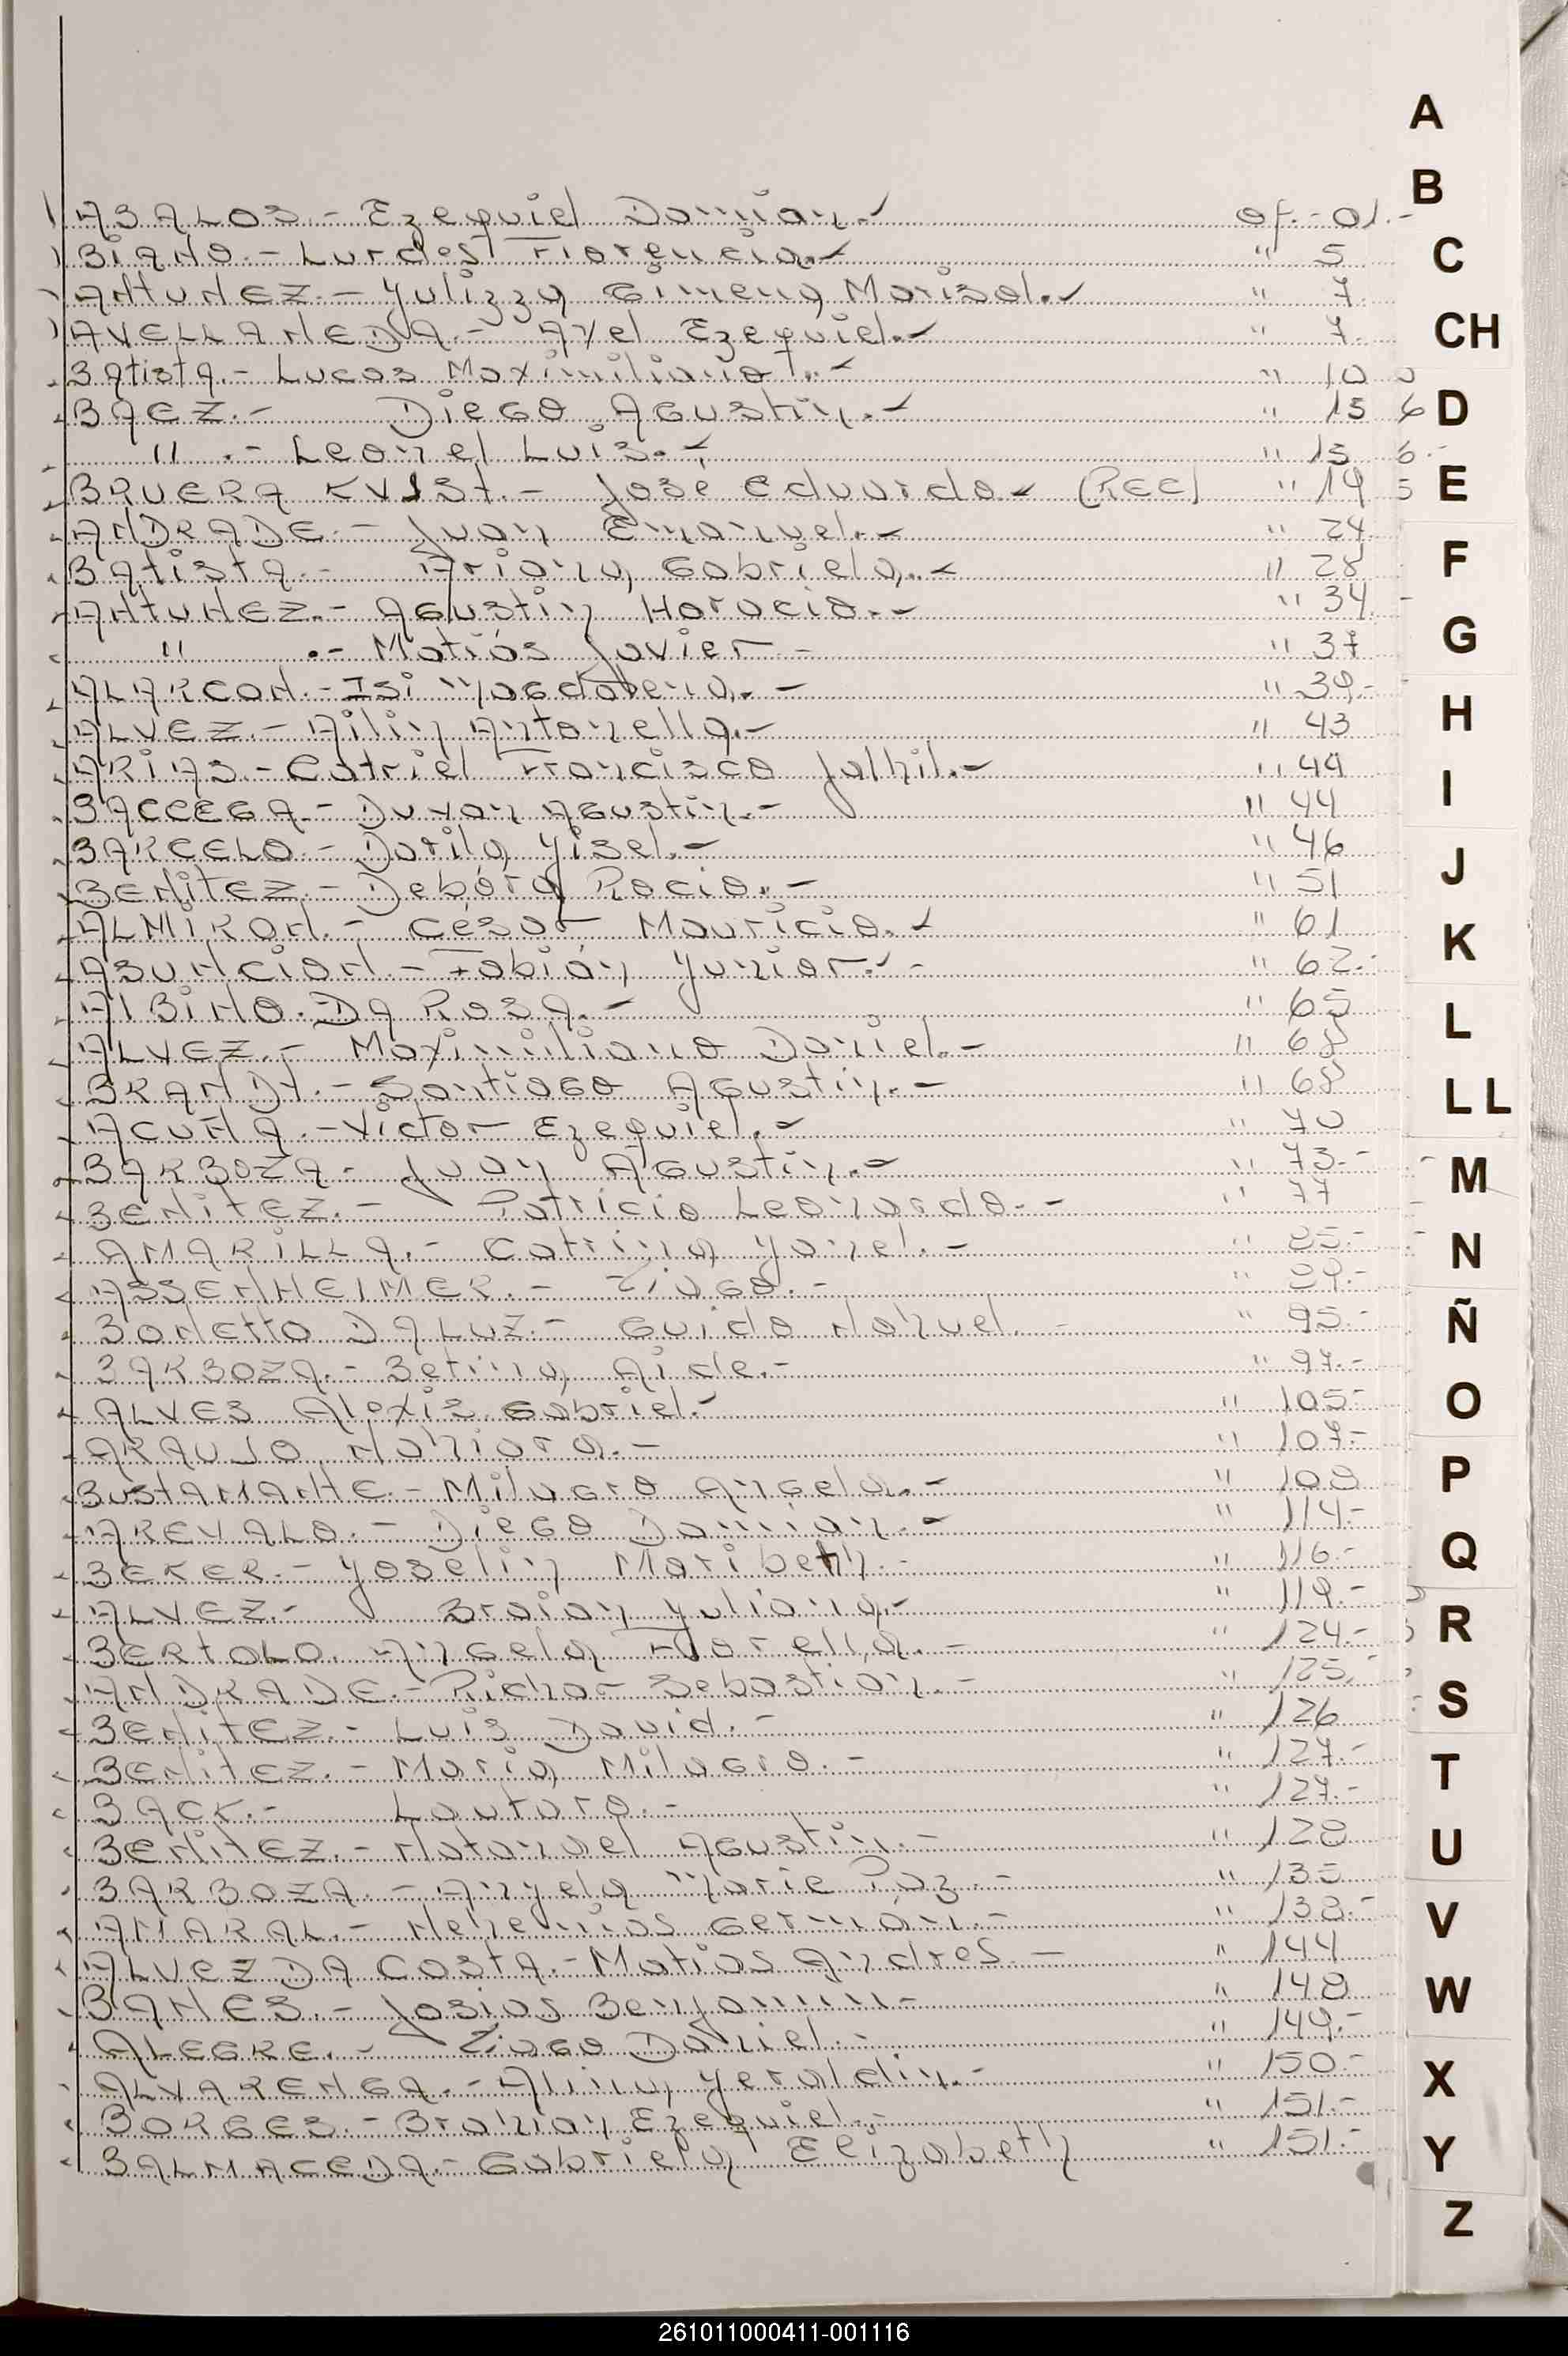 ABALOS.- Ezequiel Damian.- of.- 01.-
BiANO.- Lurdes Fiorencia.- " 5
ANtUNEZ.- Yulizza Gimena Marisol.- " 7
AVELLANEDA.- Axel Ezequiel.- " 7.
BAtistA.- Lucas Maximiliano.- " 10
BAEZ.- Diego Agustin.- " 15
" .- Leonel Luis.- " 15
BRUERA KVIST.- Jose Eduardo.- (REC) " 19
ANDRADE.- Juan Emanuel.- " 24
BAtistA.- Ariana Gabriela.- " 28
ANtUNEZ.- Agustin Horacio.- " 34
" .- Matiás Javier.- " 37
ALARCON.- Isi Magdalena.- " 39.-
ALVEZ.- Ailin Antonella.- " 43
ARIAS.- Catriel Francisco Jalhil.- " 44
BACCEGA.- Duvan Agustin.- " 44
BARCELO.- Darila Yisel.- " 46
BENitEZ.- Debóra Rocio.- " 51
ALMiRON.- César Mauricio.- " 61
ASUNCION.- Fabián Yunior.- " 62.-
AlBiNO.DA ROSA.- " 65
ALVEZ.- Maximiliano Daniel.- " 68
BRANDt.- Santiago Agustin.- " 68
ACUÑA.- Victor Ezequiel.- " 70
BARBOZA.- Juan Agustin.- " 73.-
BENitEZ.- Patricio Leonardo.- " 77
AMARiLLA.- Catrina Yanel.- " 85.-
ASSENHEIMER.- Tiago.- " 89.-
BONEtto DA LUZ.- Guido Nahuel.- " 95.-
BARBOZA.- Betina Aide.- " 97.-
ALVES Alexis Gabriel.- " 105.-
ARAUJO Nahiara.- " 107.-
BUStAMANtE.- Milagro Angela.- " 108
AREVALO.- Diego Damian.- " 114.-
BEKER.- Yoselin Maribeth.- " 116.-
ALVEZ.- Braian Yuliano.- " 119.-
BERtOLO Angela Fiorella.- " 124.-
ANDRADE.- Richar Sebastian.- " 125.-
BENitEZ.- Luis David.- " 126
BENitEZ.- Maria Milagro.- " 127.-
BACK.- Lautaro.- " 127.-
BENitEZ.- Natanael Agustin.- " 128
BARBOZA.- Angela Marie Paz.- " 135
AMARAL.- Nehemias German.- " 138.-
ALVEZ DA COStA.- Matias Andres.- " 144
BANES.- Josias Benjamin.- " 148
ALEGRE.- Tiago Daniel.- " 149.-
ALVARENGA.- Alina Yeraldin.- " 150.-
BORGES.- Brahian Ezequiel.- " 151.-
BALMACEDA.- Gabriela Elizabeth " 151.-
A
B
C
CH
D
E
F
G
H
I
J
K
L
LL
M
N
Ñ
O
P
Q
R
S
T
U
V
W
X
Y
Z
261011000411-001116